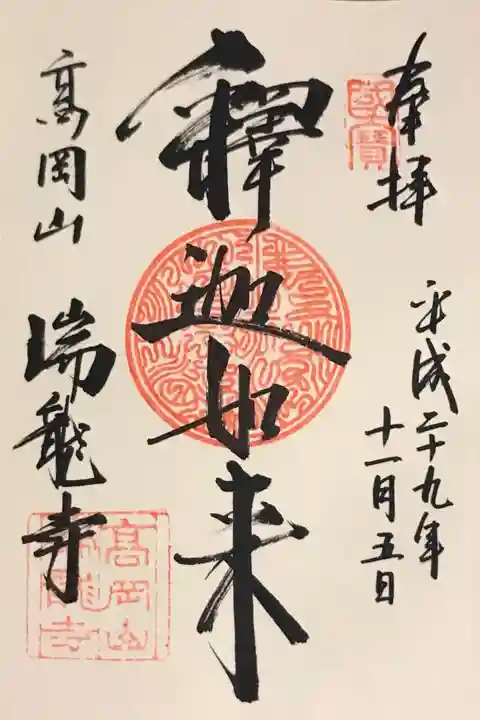 奉拝
國寶
平成二十九年
十一月五日
釋迦如来
高岡山
瑞龍寺
高岡山
瑞龍寺